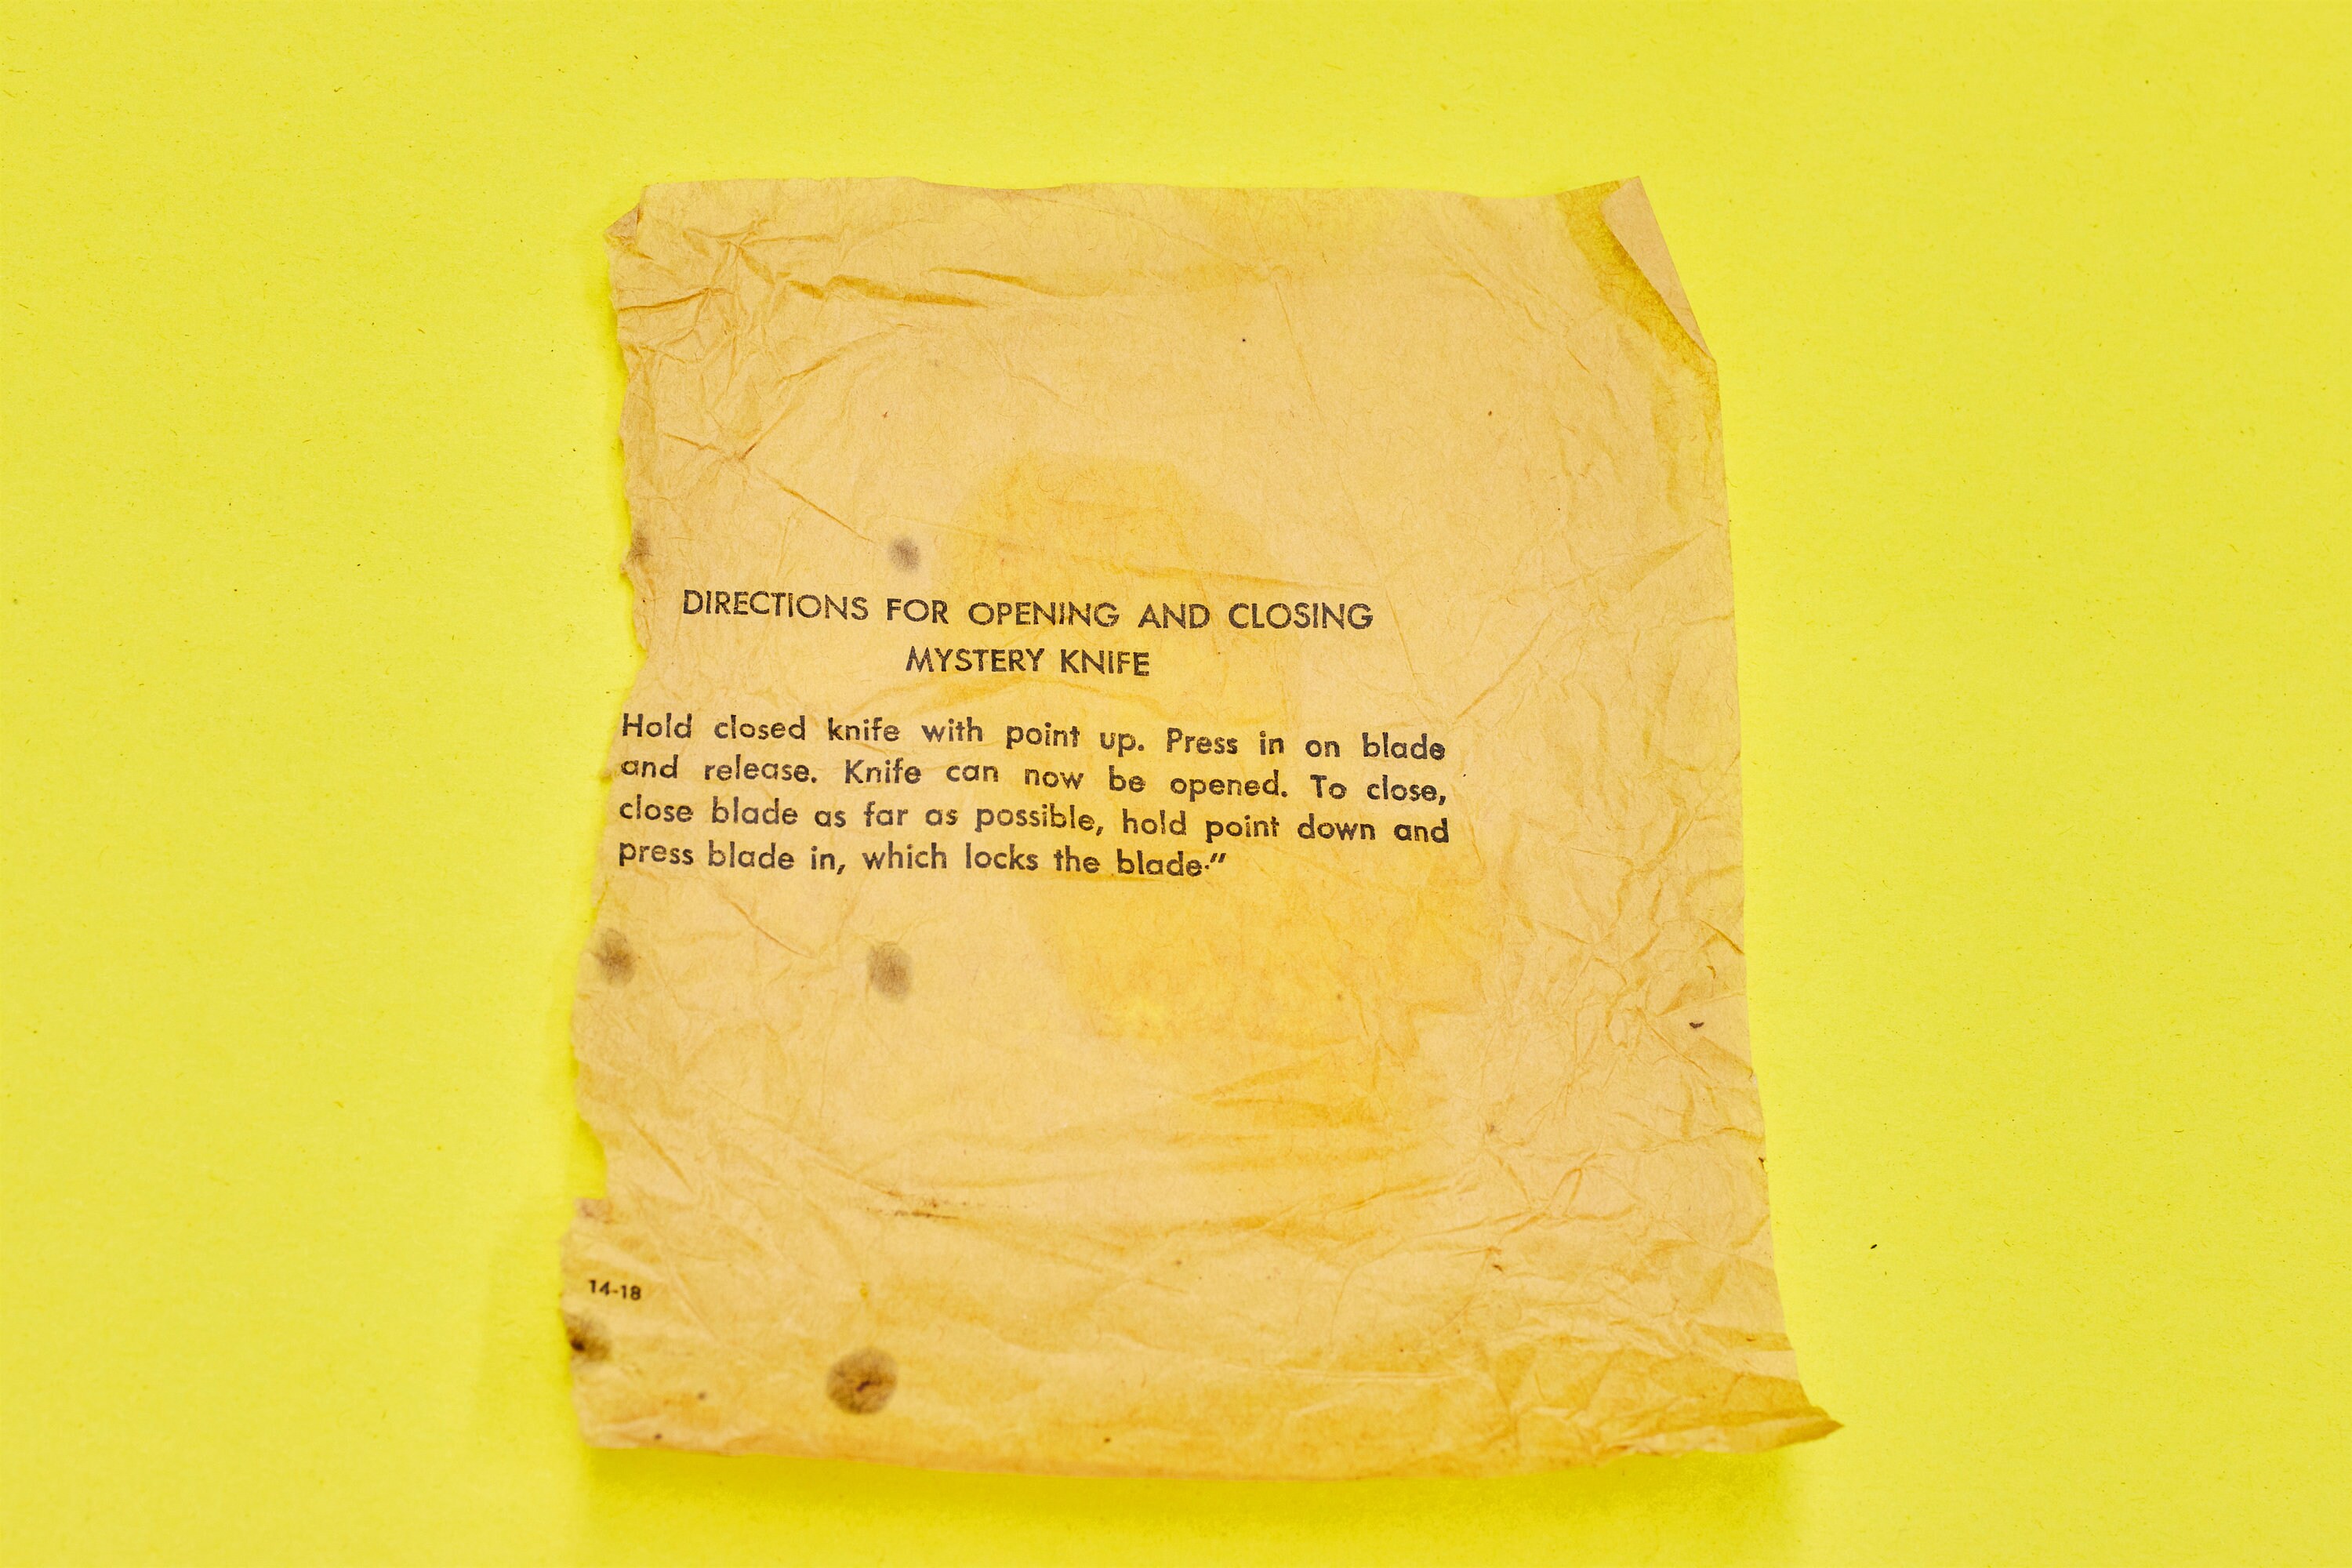 DIRECTIONS FOR OPENING AND CLOSING
MYSTERY KNIFE
Hold closed knife with point up. Press in on blade
and release. Knife can now be opened. To close,
close blade as far as possible, hold point down and
press blade in, which locks the blade."
14-18